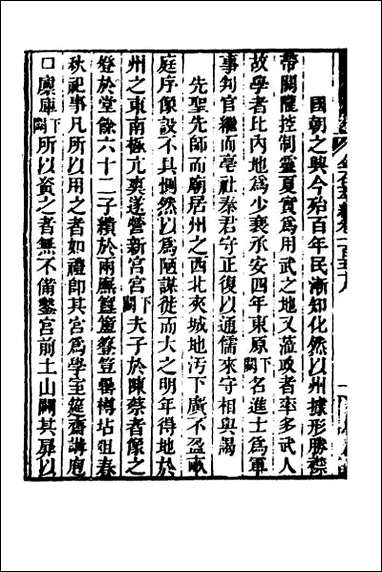 國朝之興今殆百年民漸知化然以州據形勝襟
帶關隴控制靈夏實為用武之地又蒞政者率多武人
故學者比內地為少裹承安四年東原下闕名進士為軍
事判官繼而亳社秦君守正復以通儒來守相與謁
先聖先師而廟居州之西北夾城地汚下廣不盈畝
庭序像設不具惻然以為陋謀徙而大之明年得地於
州之東南極亢爽遂營新宮宮下闕夫子於陳蔡者像之
於堂餘六十二子繢於兩廡簠簋籩豆罍樽坫俎春
秋祀事凡所以用之者如禮卽其宮為學室筵齋講庖
口廪庫下闕所以資之者無不備鑿宮前土山闢其扉以